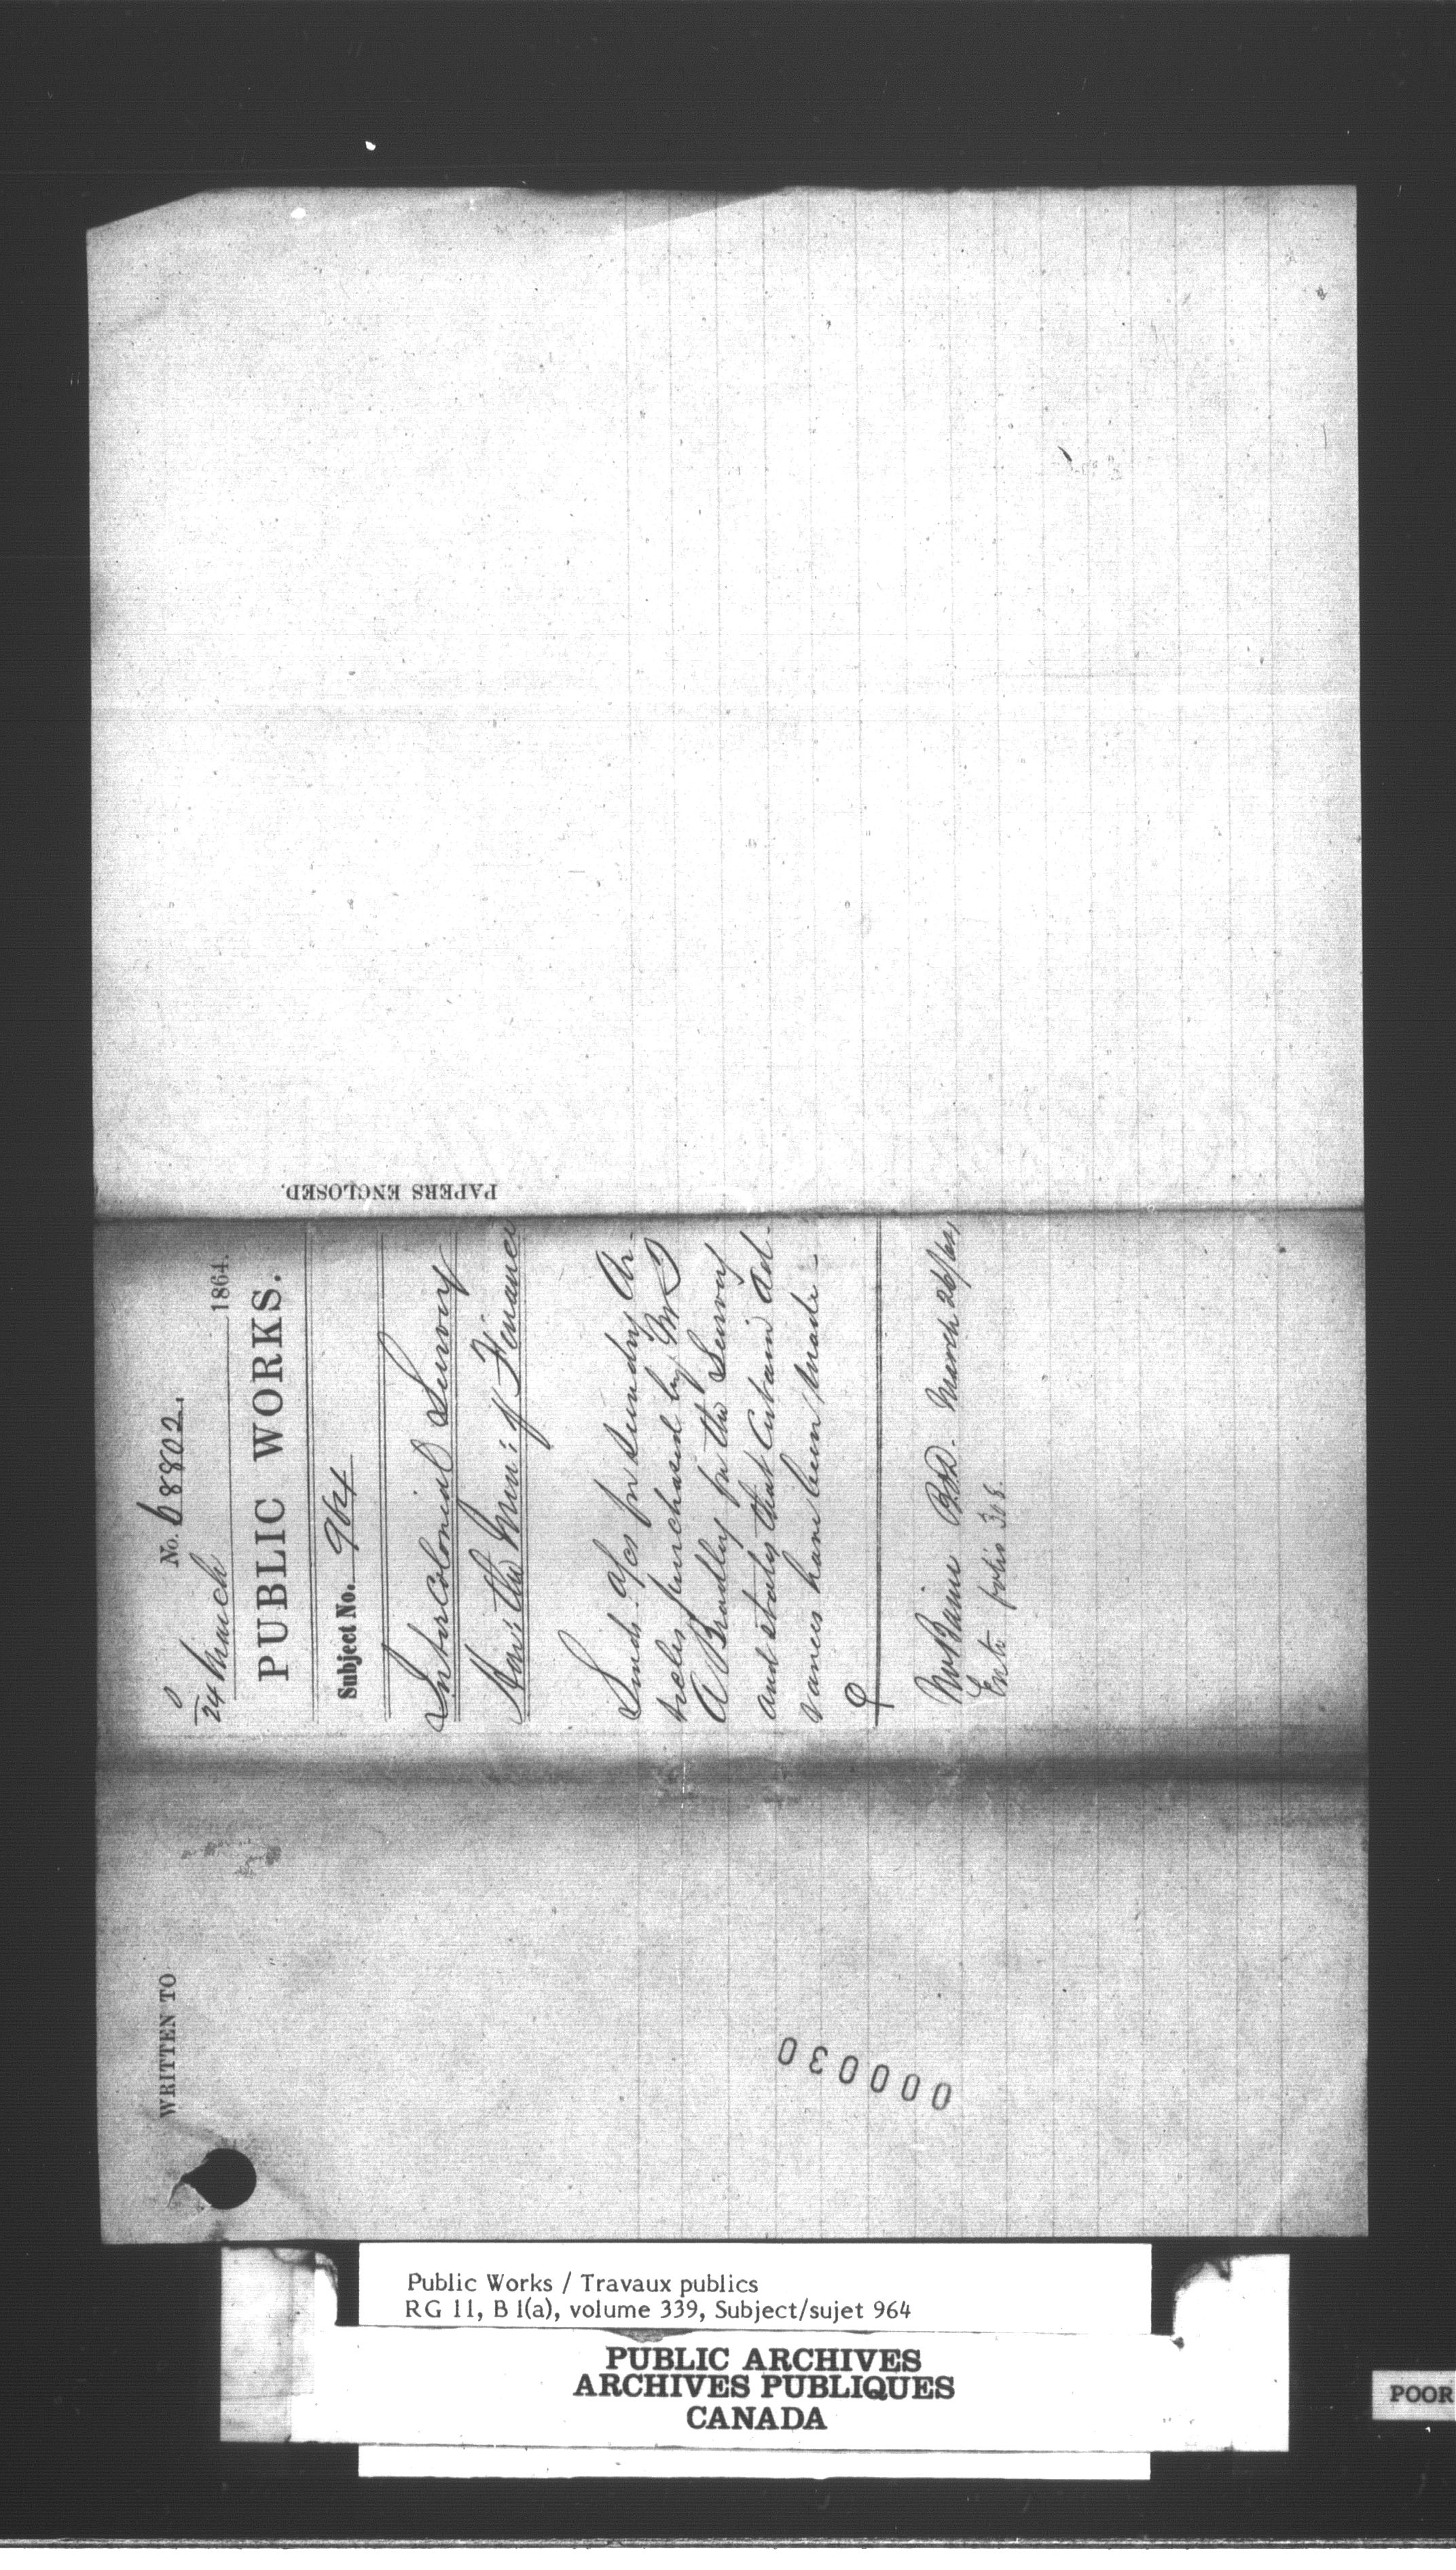 No. 68802.
24 March 1864.
PUBLIC WORKS.
Subject No. 964
Intercolonial Survey
Hon: the Min: of Finance
Sends a/cs for sundry Ar-
ticles purchased by Mr J
A Bradley for the Survey
and states that certain ad-
vances have been made -
March 26/64
Ent. folio
PAPERS ENCLOSED.
WRITTEN TO
000030
Public Works / Travaux publics
RG 11, B 1(a), volume 339, Subject/sujet 964
PUBLIC ARCHIVES
ARCHIVES PUBLIQUES
CANADA
POOR